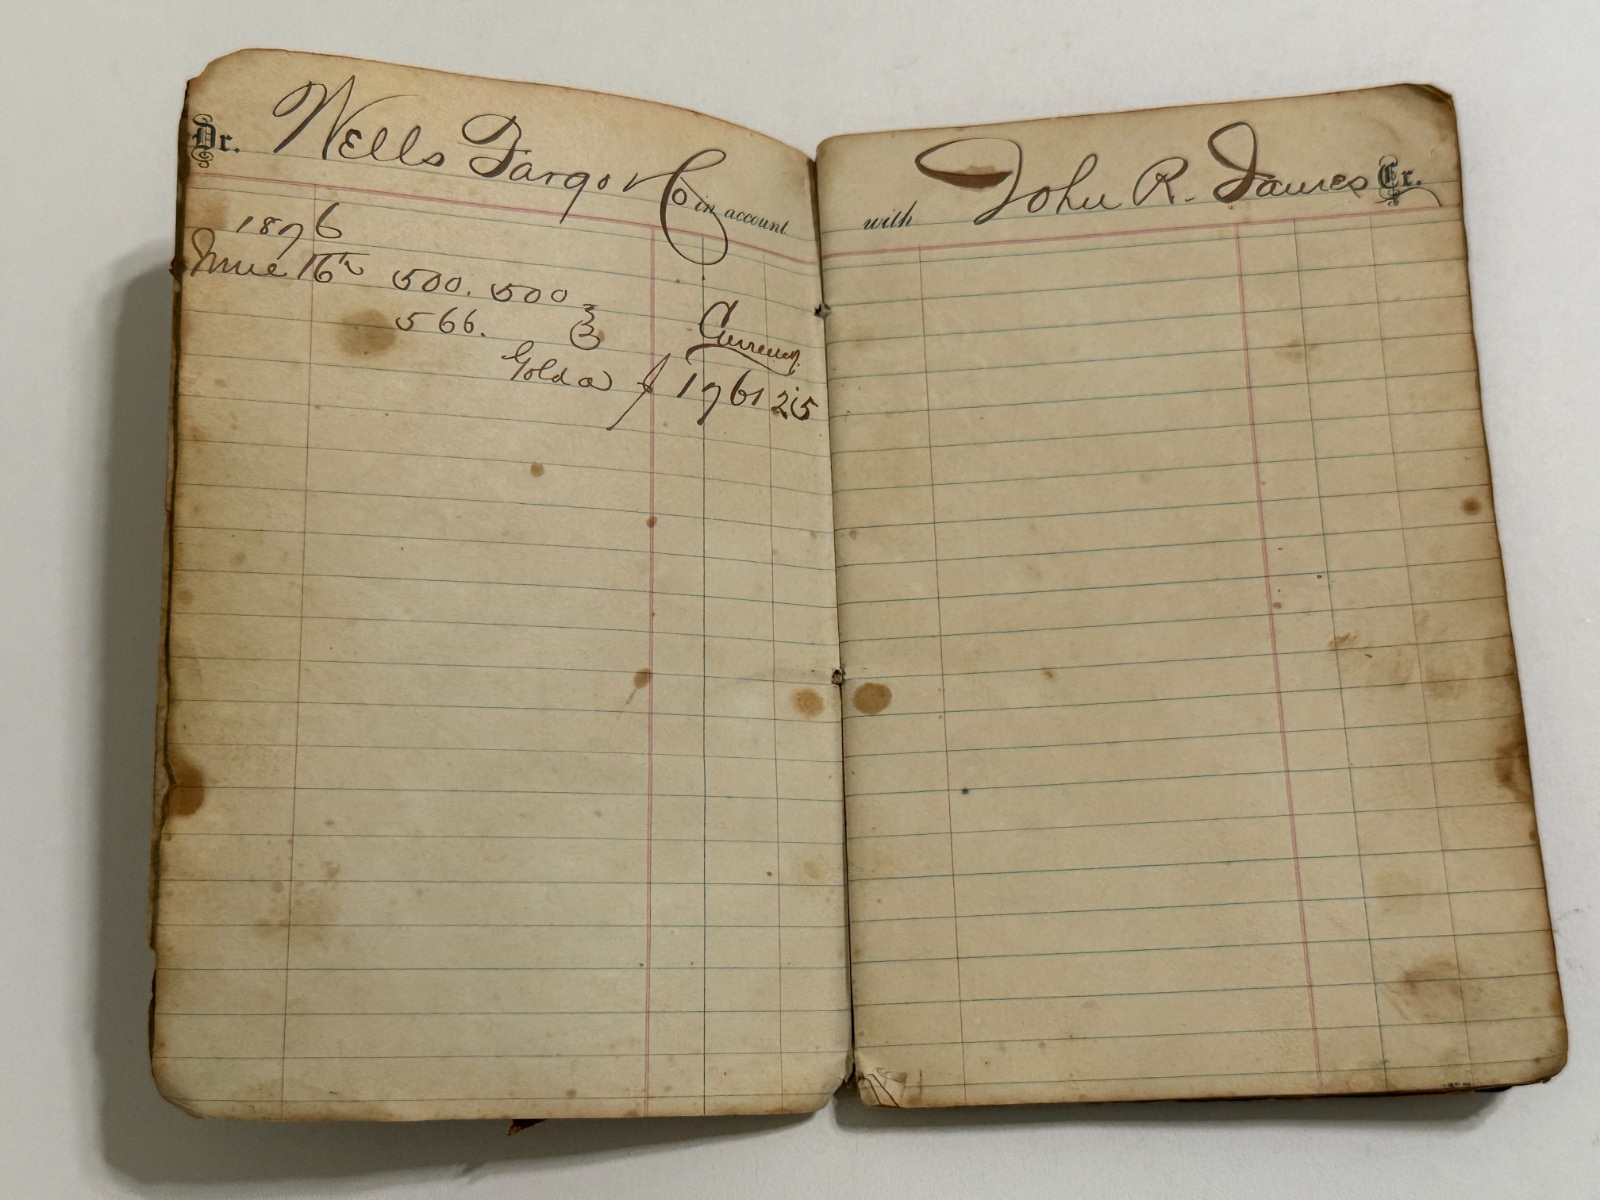 Dr. Wells Fargo & Co in account
with John R. James Cr.
1876
June 16th 500. 500
566.
Currency
Gold @ 1761 25